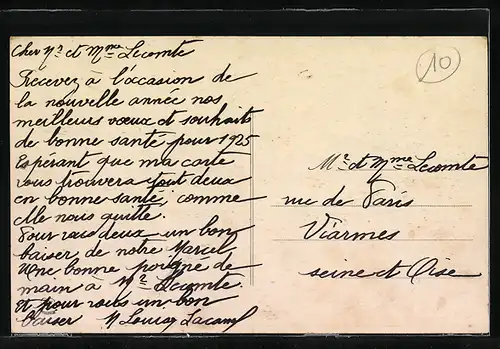 Cher Mr et Mme Lecomte
Recevez à l'occasion de
la nouvelle année nos
meilleurs vœux et souhaits
de bonne santé pour 1925
Espérant que ma carte
vous trouvera tout deux
en bonne santé, comme
elle nous quitte.
Pour vous deux un bon
baiser de notre Marcel
Une bonne poignée de
main à Mr Lecomte.
Et pour vous un bon
baiser M Louise
10
Mr et Mme Lecomte
rue de Paris
Viarmes
seine et Oise